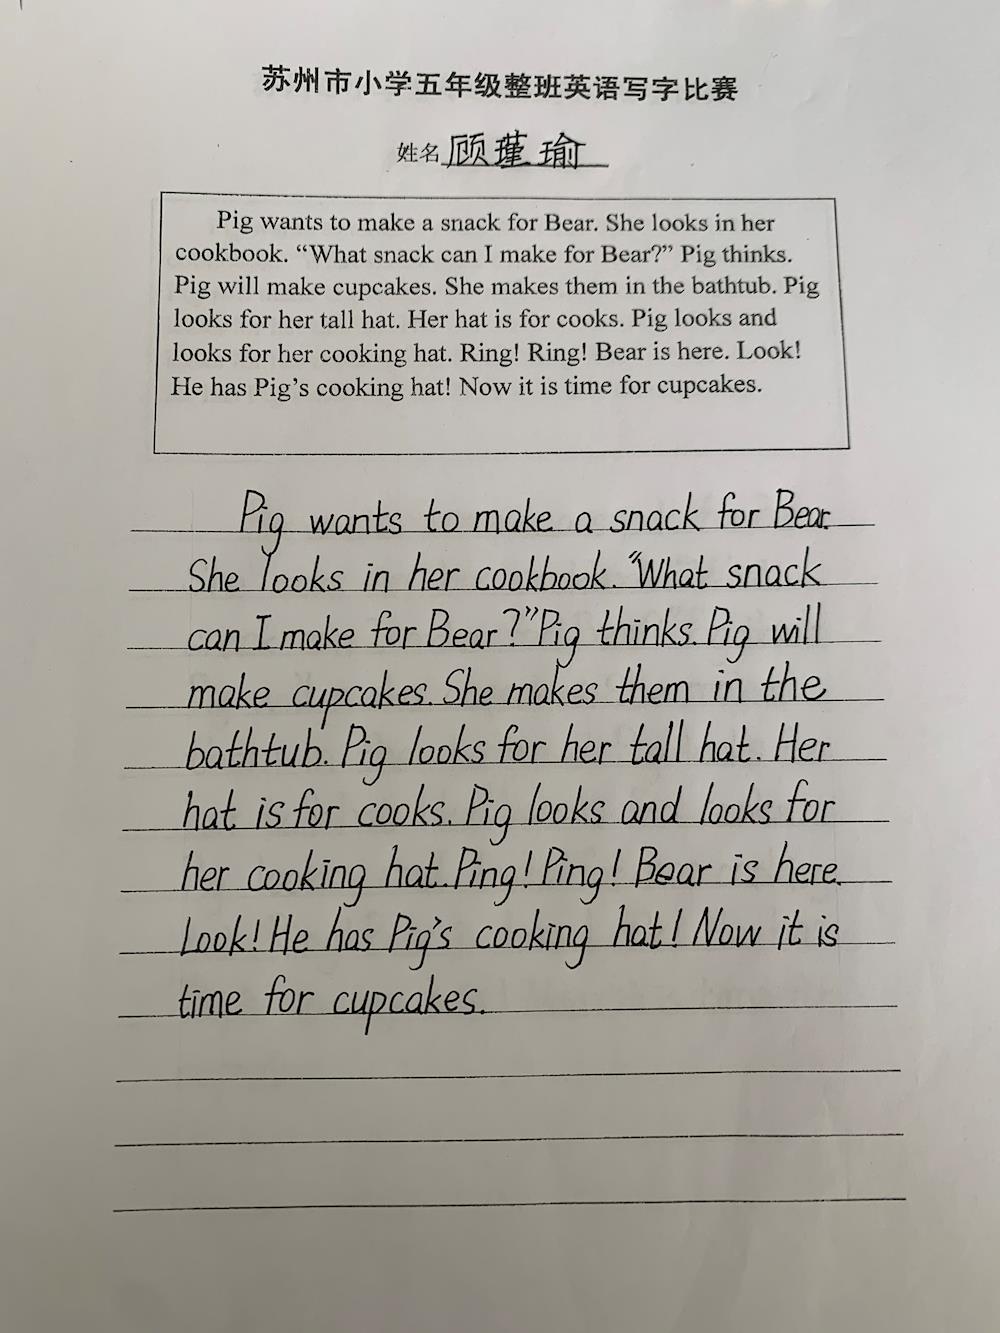 苏州市小学五年级整班英语写字比赛
姓名 顾瑾瑜
Pig wants to make a snack for Bear. She looks in her
cookbook. “What snack can I make for Bear?” Pig thinks.
Pig will make cupcakes. She makes them in the bathtub. Pig
looks for her tall hat. Her hat is for cooks. Pig looks and
looks for her cooking hat. Ring! Ring! Bear is here. Look!
He has Pig’s cooking hat! Now it is time for cupcakes.
Pig wants to make a snack for Bear.
She looks in her cookbook. “What snack
can I make for Bear?” Pig thinks. Pig will
make cupcakes. She makes them in the
bathtub. Pig looks for her tall hat. Her
hat is for cooks. Pig looks and looks for
her cooking hat. Ping! Ping! Bear is here.
Look! He has Pig’s cooking hat! Now it is
time for cupcakes.